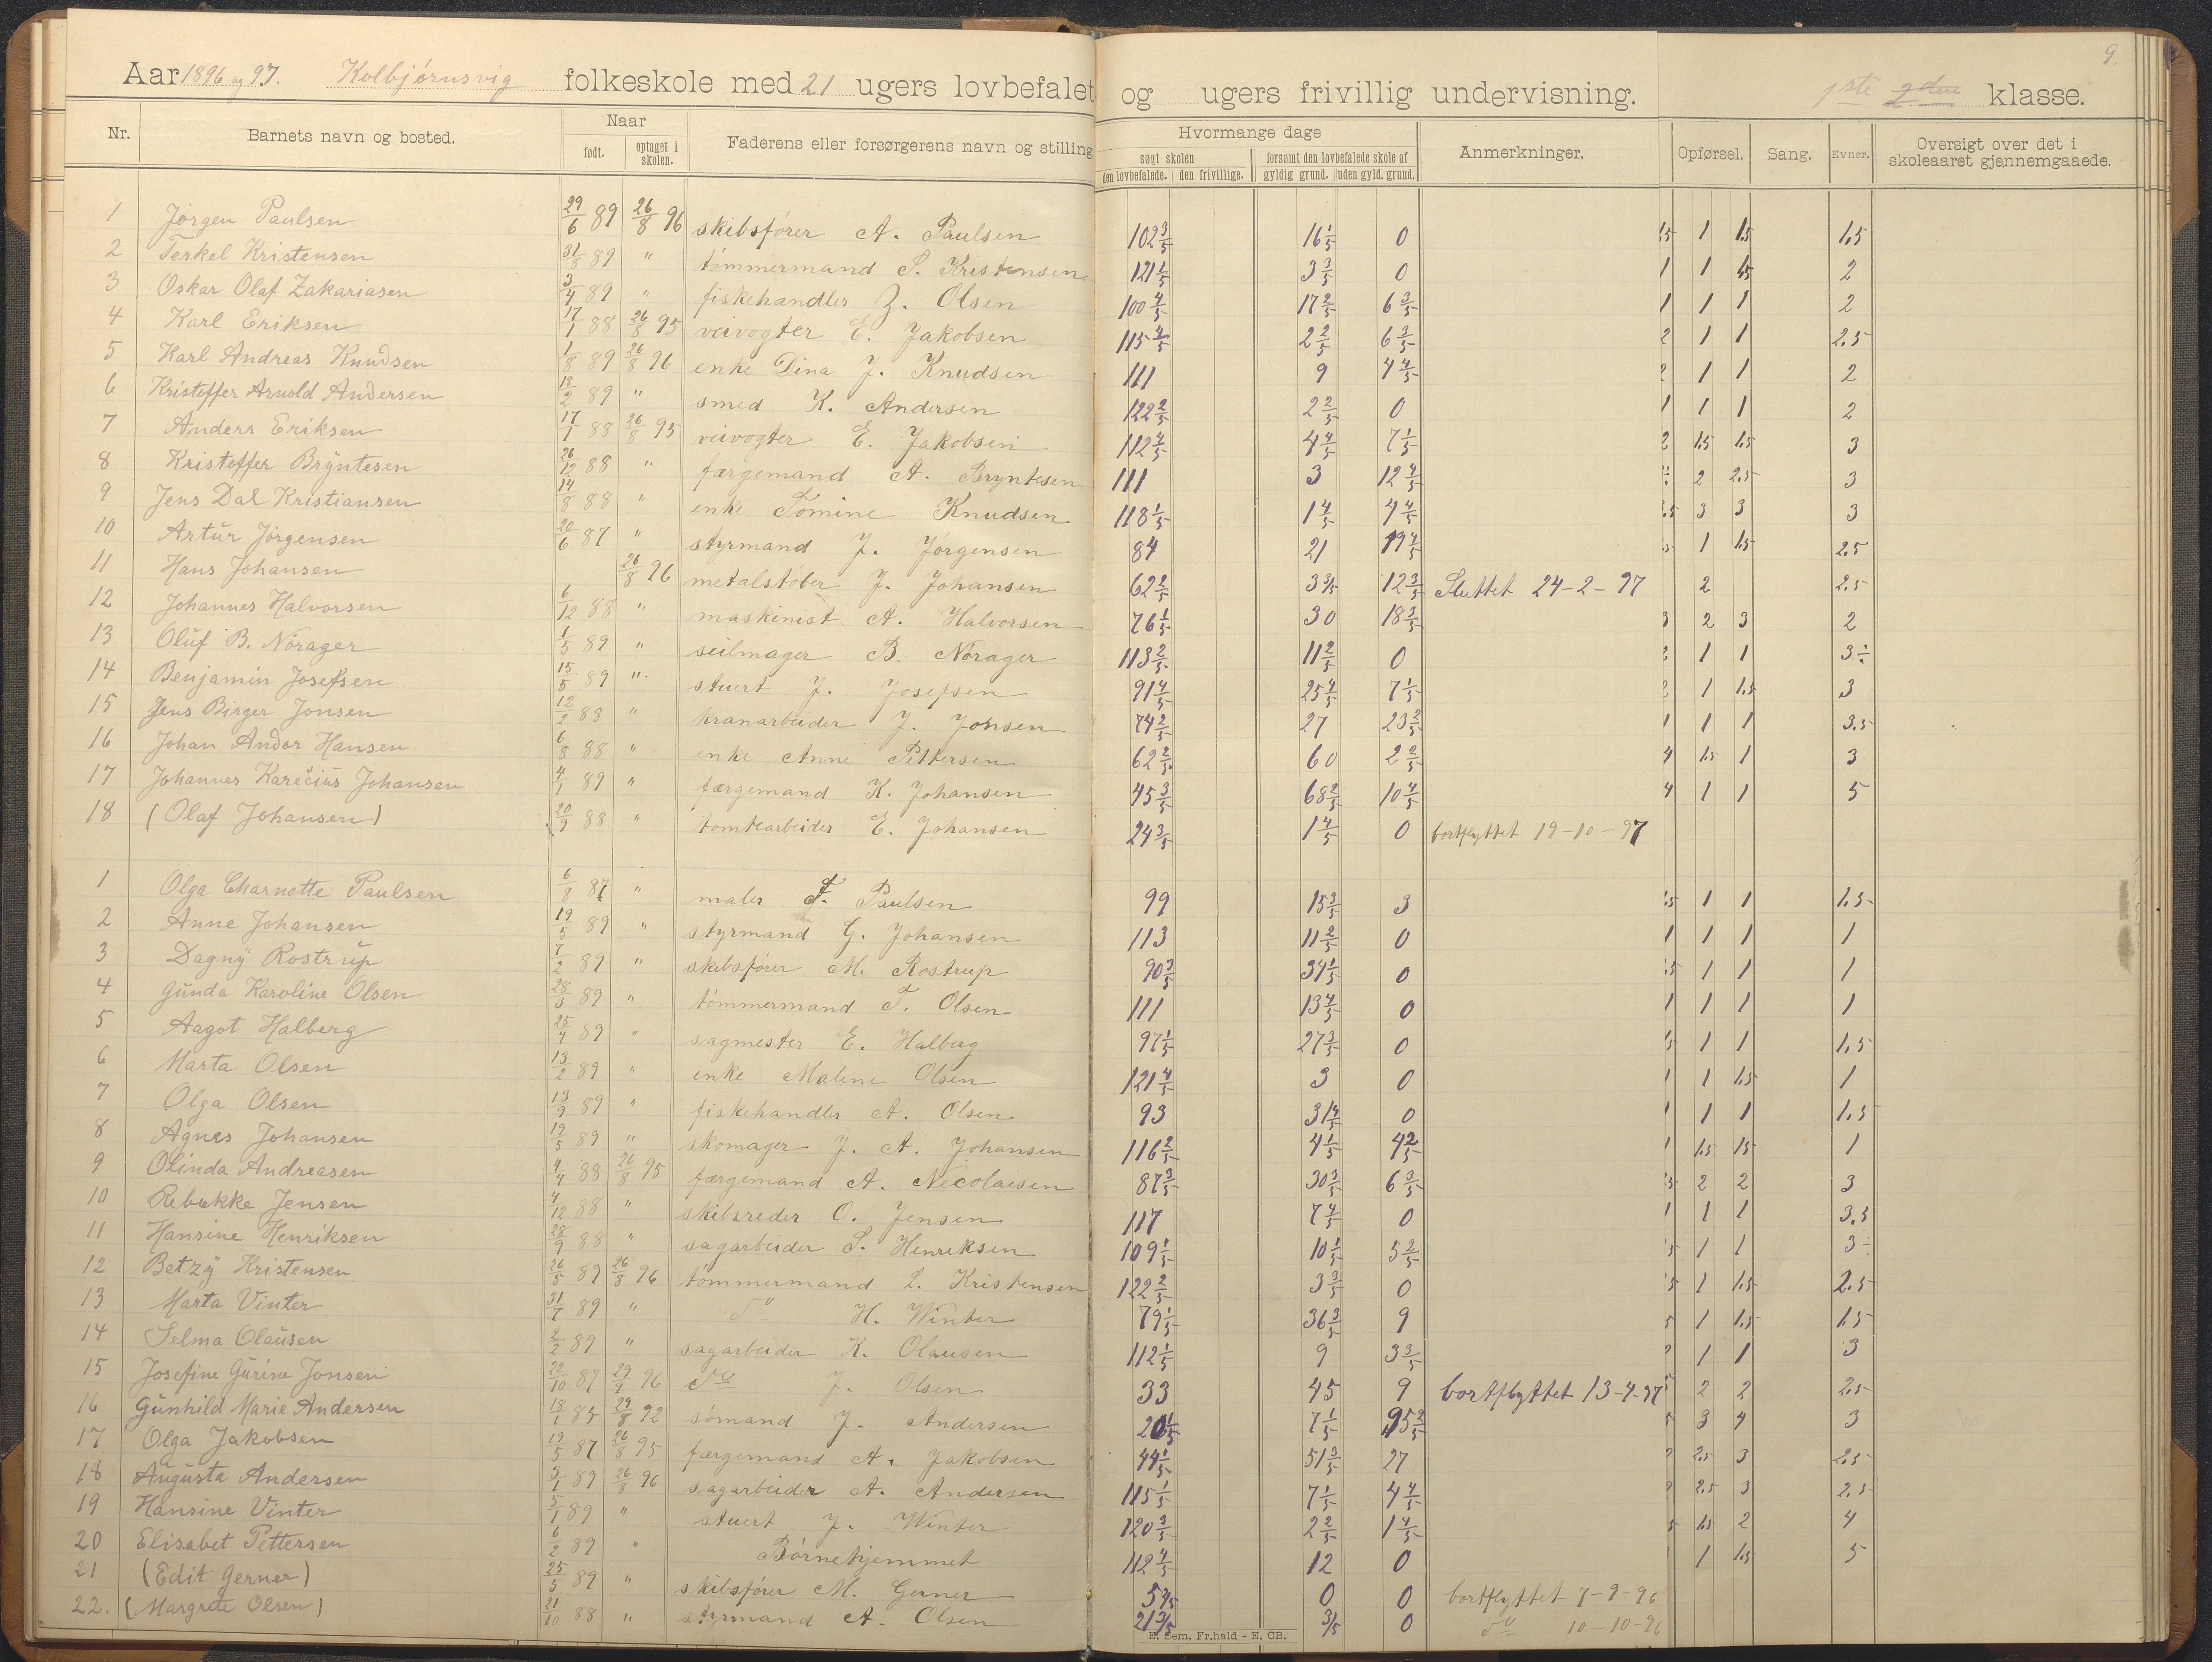 Aar 1896 og 97. Kolbjörnsvig folkeskole med 21 ugers lovbefalet og ugers frivillig undervisning. 1ste 2den klasse. 9.
Nr. Barnets navn og bosted. Naar født. optaget i skolen. Faderens eller forsørgerens navn og stilling Hvormange dage søgt skolen den lovbefalede. den frivillige. forsømt den lovbefalede skole af gyldig grund. uden gyld. grund. Anmerkninger. Opførsel. Sang. Evner. Oversigt over det i skoleaaret gjennemgaaede.
1 Jörgen Paulsen 29/6 89 26/8 96 skibsförer A. Paulsen 102 3/5 16 1/5 0 1 1.5 1.5
2 Terkel Kristensen 31/8 89 " tömmermand S. Kristensen 121 1/5 3 3/5 0 1 1 1.5 2
3 Oskar Olaf Zakariasen 3/4 89 " fiskehandler Z. Olsen 100 4/5 17 2/5 6 3/5 1 1 1 2
4 Karl Eriksen 17/1 88 26/8 95 veivogter E. Jakobsen 115 4/5 2 2/5 6 3/5 2 1 1 2.5
5 Karl Andreas Knudsen 1/8 89 26/8 96 enke Dina J. Knudsen 111 9 4 4/5 2 1 1 2
6 Kristoffer Arnold Andersen 18/2 89 " smed K. Andersen 122 2/5 2 2/5 0 1 1 1 2
7 Anders Eriksen 17/1 88 26/8 95 veivogter E. Jakobsen 112 4/5 4 4/5 7 1/5 2 1.5 1.5 3
8 Kristoffer Bryntesen 26/12 88 " færgemand A. Bryntesen 111 3 12 4/5 2 2.5 3
9 Jens Dal Kristiansen 14/8 88 " enke Tomine Knudsen 118 1/5 1 4/5 4 4/5 3 3 3
10 Artur Jörgensen 20/6 87 " styrmand J. Jörgensen 84 21 19 4/5 1 1.5 2.5
11 Hans Johansen 26/8 96 metalstöber J. Johansen 62 2/5 3 3/5 12 3/5 Sluttet 24-2-97 2 2.5
12 Johannes Halvorsen 6/12 88 " maskinist A. Halvorsen 76 1/5 30 18 3/5 3 2 3 2
13 Oluf B. Nörager 1/5 89 " seilmager B. Nörager 113 2/5 11 2/5 0 2 1 1 3÷
14 Benjamin Josefsen 15/5 89 " stuert J. Josefsen 91 4/5 25 4/5 7 1/5 2 1 1.5 3
15 Jens Birger Jonsen 12/2 88 " kranarbeider J. Jonsen 74 2/5 27 23 2/5 1 1 1 3.5
16 Johan Andor Hansen 6/8 88 " enke Anne Pettersen 62 2/5 60 2 2/5 4 1.5 1 3
17 Johannes Karecius Johansen 4/1 89 " færgemand K. Johansen 45 3/5 68 2/5 10 4/5 4 1 1 5
18 (Olaf Johansen) 20/9 88 " tomtearbeider E. Johansen 24 3/5 1 4/5 0 bortflyttet 19-10-97
1 Olga Charnette Paulsen 6/8 87 " maler F. Paulsen 99 15 3/5 3 1 1 1.5
2 Anne Johansen 19/5 89 " styrmand G. Johansen 113 11 2/5 0 1 1 1 1
3 Dagny Rostrup 7/2 89 " skibsförer M. Rostrup 90 3/5 34 1/5 0 1 1 1
4 Gunda Karoline Olsen 28/3 89 " tömmermand T. Olsen 111 13 4/5 0 1 1 1 1
5 Aagot Halberg 25/4 89 " sagmester E. Halberg 97 1/5 27 3/5 0 1 1 1.5
6 Marta Olsen 13/2 89 " enke Malene Olsen 121 4/5 3 0 1 1 1.5 1
7 Olga Olsen 13/9 89 " fiskehandler A. Olsen 93 31 4/5 0 1 1 1 1.5
8 Agnes Johansen 19/5 89 " skomager J. A. Johansen 116 2/5 4 1/5 4 2/5 1 1.5 1.5 1
9 Olinda Andreasen 4/4 88 26/8 95 færgemand A. Nicolaisen 87 3/5 30 3/5 6 3/5 2 2 3
10 Rebekke Jensen 4/12 88 " skibsreder O. Jensen 117 7 4/5 0 1 1 1 3.5
11 Hansine Henriksen 28/9 88 " sagarbeider S. Henriksen 109 1/5 10 1/5 5 2/5 1 1 3÷
12 Betzy Kristensen 26/5 89 26/8 96 tömmermand L. Kristensen 122 2/5 3 3/5 0 1 1.5 2.5
13 Marta Vinter 31/7 89 " do H. Winter 79 1/5 36 3/5 9 1 1.5 1.5
14 Selma Olausen 2/2 89 " sagarbeider K. Olausen 112 1/5 9 3 3/5 1 1 3
15 Josefine Gurine Jonsen 22/10 87 29/9 96 do J. Olsen 33 45 9 bortflyttet 13-4-97 2 2 2.5
16 Gunhild Marie Andersen 18/1 85 29/8 92 sömand J. Andersen 20 1/5 7 1/5 95 2/5 3 4 3
17 Olga Jakobsen 19/5 87 26/8 95 færgemand A. Jakobsen 44 1/5 51 3/5 27 2.5 3 2.5
18 Augusta Andersen 3/1 89 26/8 96 sagarbeider A. Andersen 115 1/5 7 1/5 4 4/5 2.5 3 2.5
19 Hansine Vinter 5/1 89 " stuert J. Winter 120 3/5 2 2/5 1 4/5 1.5 2 4
20 Elisabet Pettersen 6/2 89 " Börnehjemmet 112 4/5 12 0 1 1.5 5
21 (Edit Gerner) 25/5 89 " skibsförer M. Gerner 5 4/5 0 0 bortflyttet 7-9-96
22. (Margrete Olsen) 21/10 88 " styrmand A. Olsen 21 3/5 3/5 0 do 10-10-96
E. Sem, Fr.hald - E. CB.